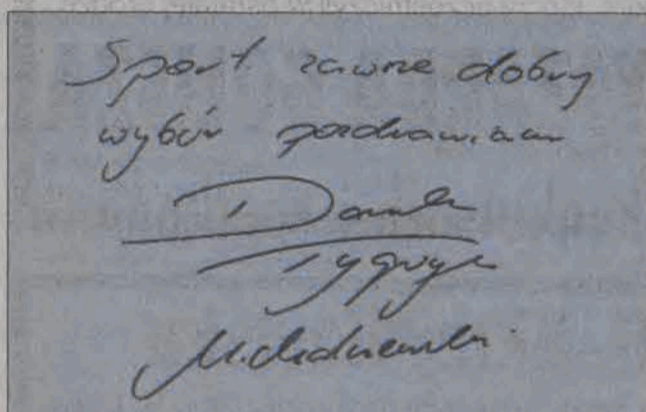 Sport zawsze dobry
wybór pozdrawiam
Darek
Tygrys
Michalczewski